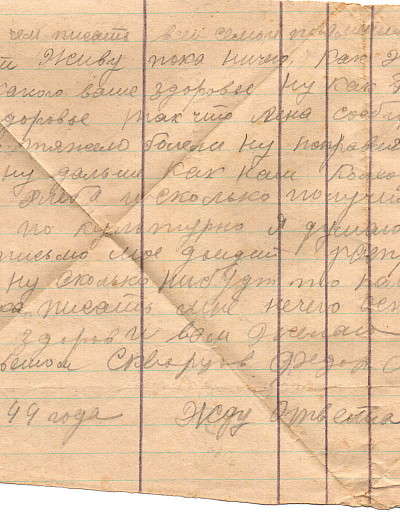 чем писать всей семьи
Живу пока ничю, как
каково ваше здоровье ну как
здоровье так что Лена сообщ
тяжело болели ну поправи
ну дальше как вам
хлеба и сколько получи
по культурно я думаю
письмо мое дойдит
ну сколько нибудь то на
ка писать мне нечего ост
здоров и вам желаю
ветом Скварцов Федор
44 года Жду Ответа